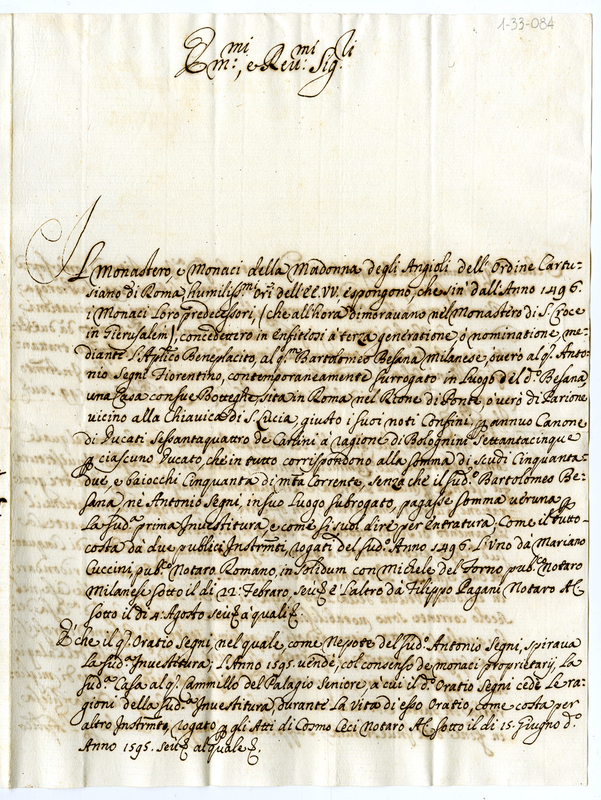 1-33-084
Em:mi, e Reu:mi Sig:li
Il Monastero, e Monaci della Madonna degli Angioli dell' Ordine Cartu-
siano di Roma humilissmi ori dell' EE. VV. espongono, che sin' dall' Anno 1496.
i Monaci Loro predecessori, (che all' hora dimoravano nel Monastero di S. Croce
in Gierusalem), concedettero in enfiteosi à terza generatione, ò nominatione me-
diante l' Aplico Beneplacito, al qm Bartolomeo Besana Milanese, ouerò al q. Anto-
nio Segni Fiorentino, contemporaneamente surrogato in Luogo del do Besana
una Casa con sue Botteghe, sita in Roma nel Rione di Ponte, ò uerò di Parione
vicino alla Chiavica di S. Lucia, giusto i suoi noti Confini, p annuo Canone
di Ducati sessantaquattro de Carlini à ragione di Bolognini Settantacinque
p ciascuno Ducato, che in tutto corrispondono alla somma di scudi Cinquanta-
due, e baiocchi Cinquanta di mta corrente, senza che il sudo Bartolomeo Be-
sana, nè Antonio Segni, in suo Luogo subrogato, pagasse somma ueruna p
La suda prima Inuestitura, e come si suol dire per Entratura; Come il tutto
costa dà due publici Instrmti, rogati del sudo Anno 1496. L'uno dà Mariano
Cuccini, pubo Notaro Romano, in solidum con Michele del Torno pubo Notaro
Milanese sotto il di 22: Febraro, seu & è L'altro dà Filippo Pagani Notaro AC
sotto il di 4: Agosto seu & à quali &
E' che il q. Oratio Segni, nel quale, come Nepote del sudo Antonio Segni, spiraua
La suda Inuestitura; L'Anno 1595. vendè, col consenso de monaci proprietarij, La
suda Casa al q. Cammillo del Palagio Seniore, à cui il do Oratio Segni cedè Le ra-
gioni della suda Inuestitura, durante La Vita di esso Oratio, come costa per
altro Instrmto, rogato p gli Atti di Cosmo Ceci Notaro AC sotto il di 15. Giugno do
Anno 1595. seu & al quale &.